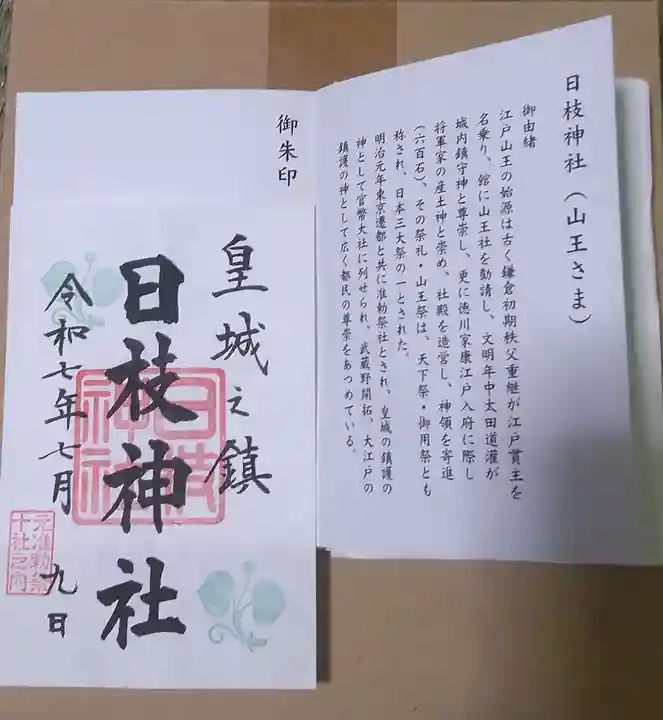 日枝神社（山王さま）
御由緒
江戸山王の始源は古く鎌倉初期秩父重継が江戸貫主を
名乗り、館に山王社を勧請し、文明年中太田道灌が
城内鎮守神と尊崇し、更に徳川家康江戸入府に際し
将軍家の産土神と崇め、社殿を造営し、神領を寄進
（六百石）、その祭礼・山王祭は、天下祭・御用祭とも
称され、日本三大祭の一とされた。
明治元年東京遷都と共に准勅祭社とされ、皇城の鎮護の
神として官幣大社に列せられ、武蔵野開拓、大江戸の
鎮護の神として広く都民の尊崇をあつめている。
御朱印
皇城之鎮
日枝神社
日枝
神社
令和七年七月九日
元准勅祭
十社之内